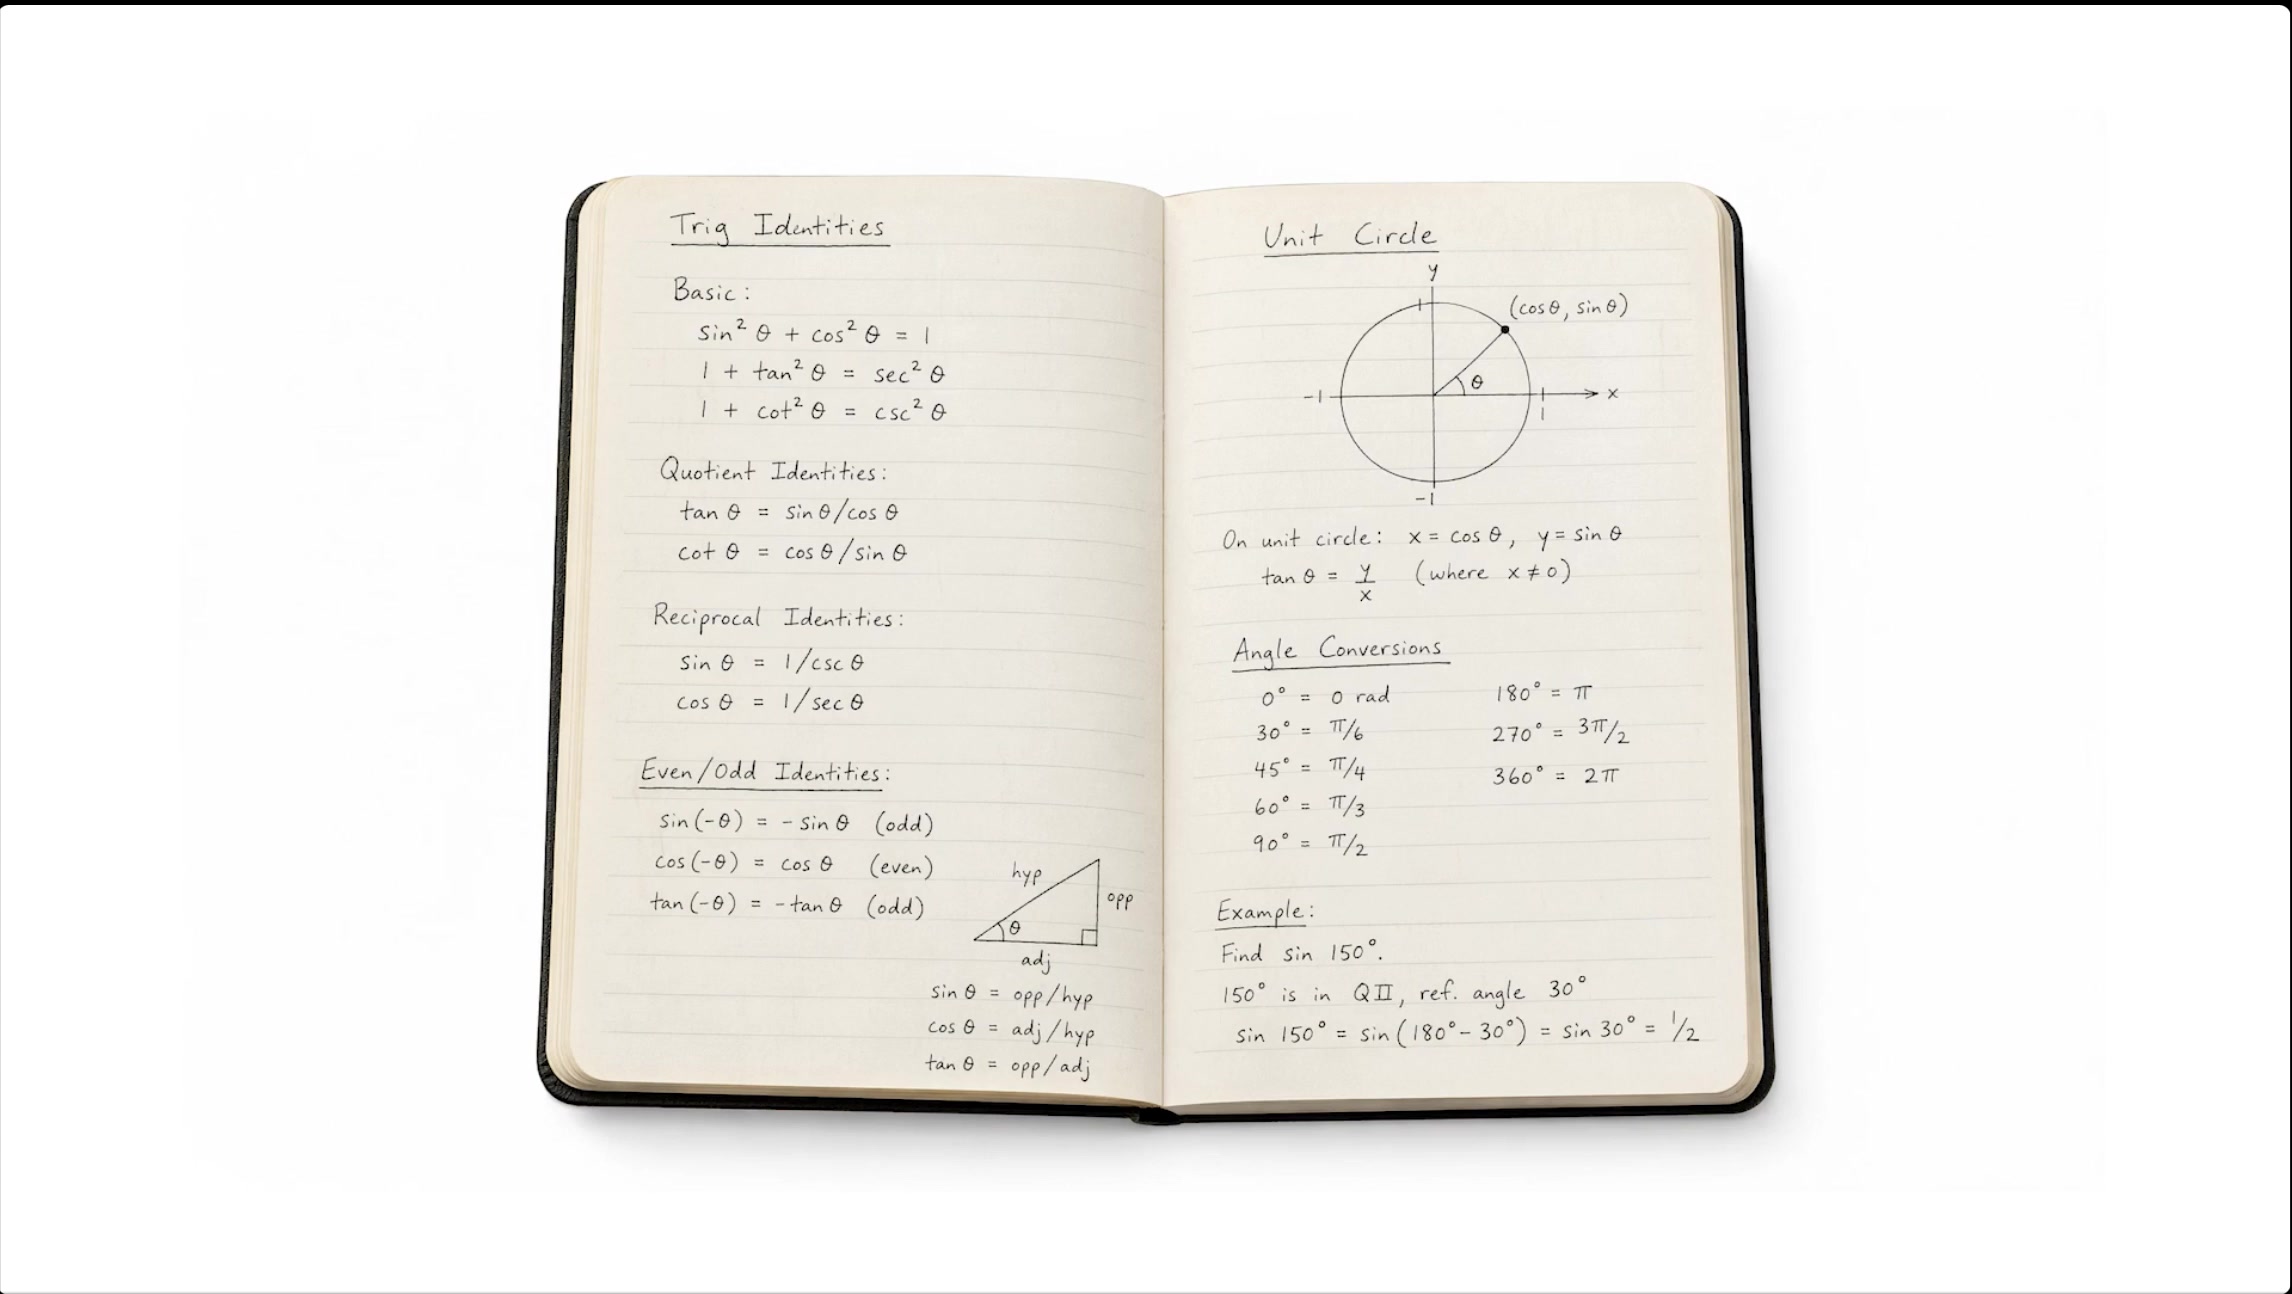 Trig Identities
Basic:
sin² θ + cos² θ = 1
1 + tan² θ = sec² θ
1 + cot² θ = csc² θ
Quotient Identities:
tan θ = sin θ/cos θ
cot θ = cos θ/sin θ
Reciprocal Identities:
sin θ = 1/csc θ
cos θ = 1/sec θ
Even/Odd Identities:
sin(-θ) = - sin θ (odd)
cos(-θ) = cos θ (even)
tan(-θ) = -tan θ (odd)
hyp
opp
θ
adj
sin θ = opp/hyp
cos θ = adj/hyp
tan θ = opp/adj
Unit Circle
y
(cos θ, sin θ)
θ
-1
x
1
-1
On unit circle: x = cos θ, y = sin θ
tan θ = y/x (where x ≠ 0)
Angle Conversions
0° = 0 rad 180° = π
30° = π/6 270° = 3π/2
45° = π/4 360° = 2π
60° = π/3
90° = π/2
Example:
Find sin 150°.
150° is in QII, ref. angle 30°
sin 150° = sin(180° - 30°) = sin 30° = 1/2